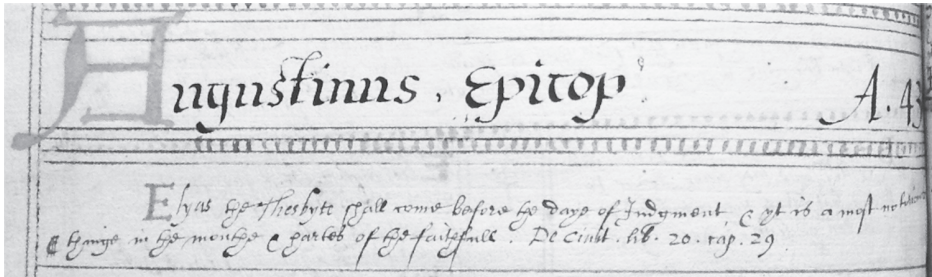 Augustinus. Episop A. 43
Elyas the Thesbyte shall come before the daye of Judgment, & yt is a most
& thinge in the mouthe & hartes of the faithfull. De Civit. lib. 20. cap. 29